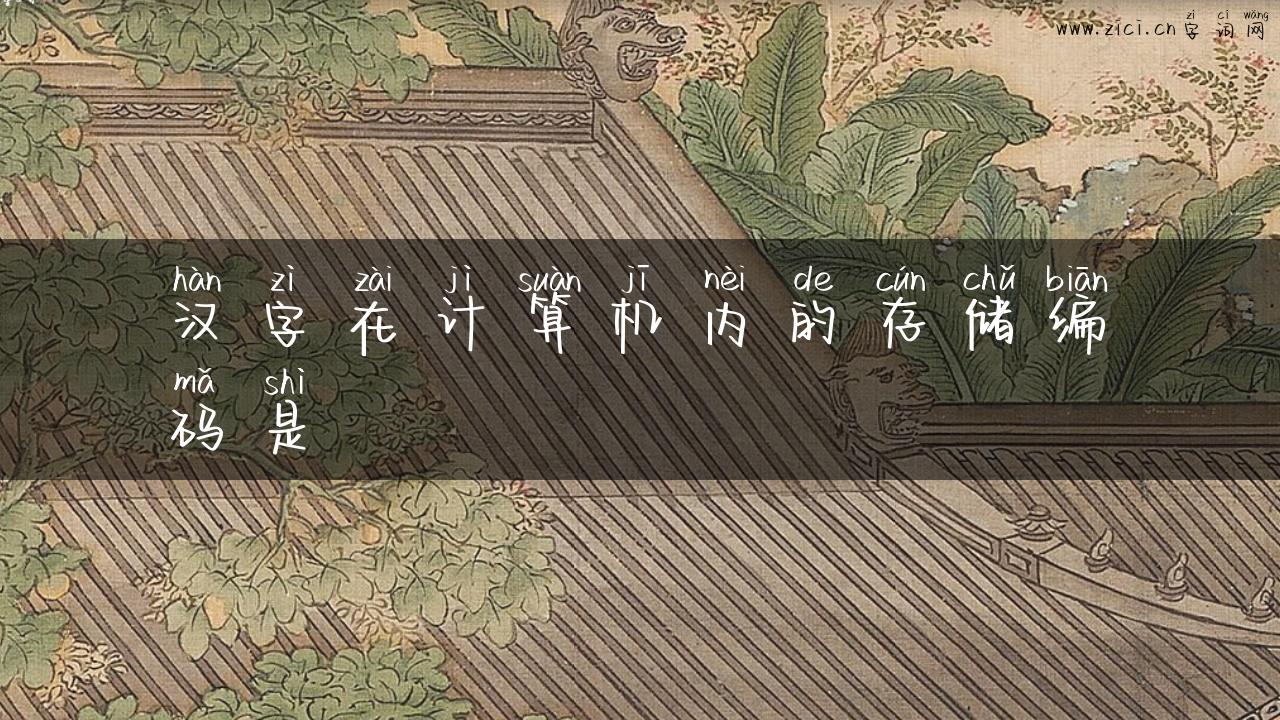 zì cí wǎng
www.zici.cn 字词网
hàn zì zài jì suàn jī nèi de cún chǔ biān
汉字在计算机内的存储编
mǎ shì
码是